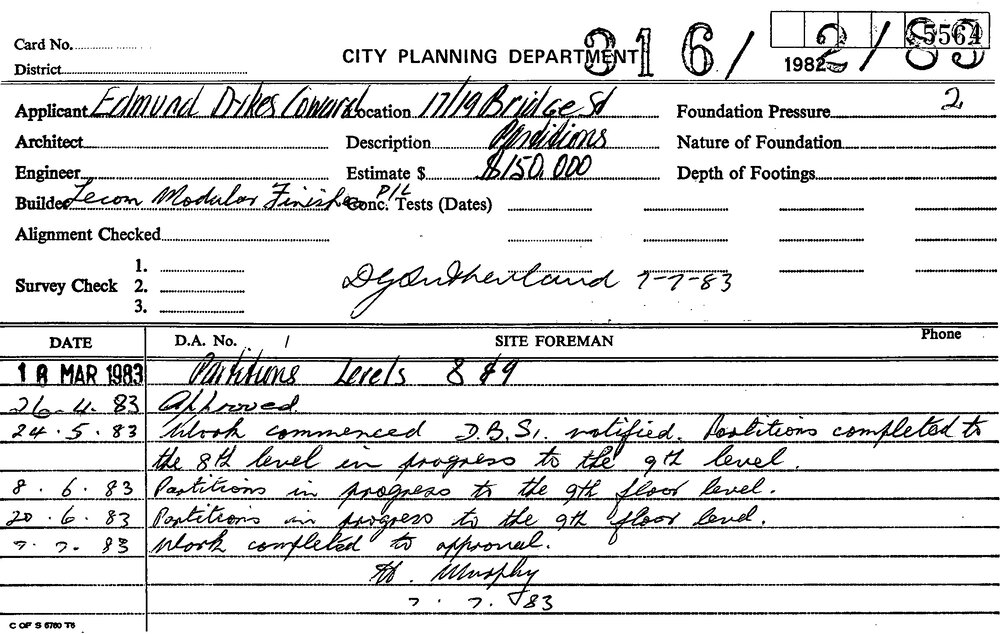 5564
316/2/83
1982
Card No.
CITY PLANNING DEPARTMENT
District
Applicant Edmund Dikes Coward Location 17/19 Bridge St Foundation Pressure 2
Architect Description Partitions Nature of Foundation
Engineer Estimate $ $150,000 Depth of Footings
Builder Tecom Modular Finishes P/L Conc. Tests (Dates)
Alignment Checked
Survey Check 1.
2.
3.
D G Sutherland 7-7-83
DATE D.A. No. / SITE FOREMAN Phone
18 MAR 1983 Partitions Levels 8 & 9
26.4.83 Approved.
24.5.83 Work commenced D.B.S. notified. Partitions completed to
the 8th level in progress to the 9th level.
8.6.83 Partitions in progress to the 9th floor level.
20.6.83 Partitions in progress to the 9th floor level.
7.7.83 Work completed to approval.
H. Murphy
7.7.83
C OF S 6760 T6